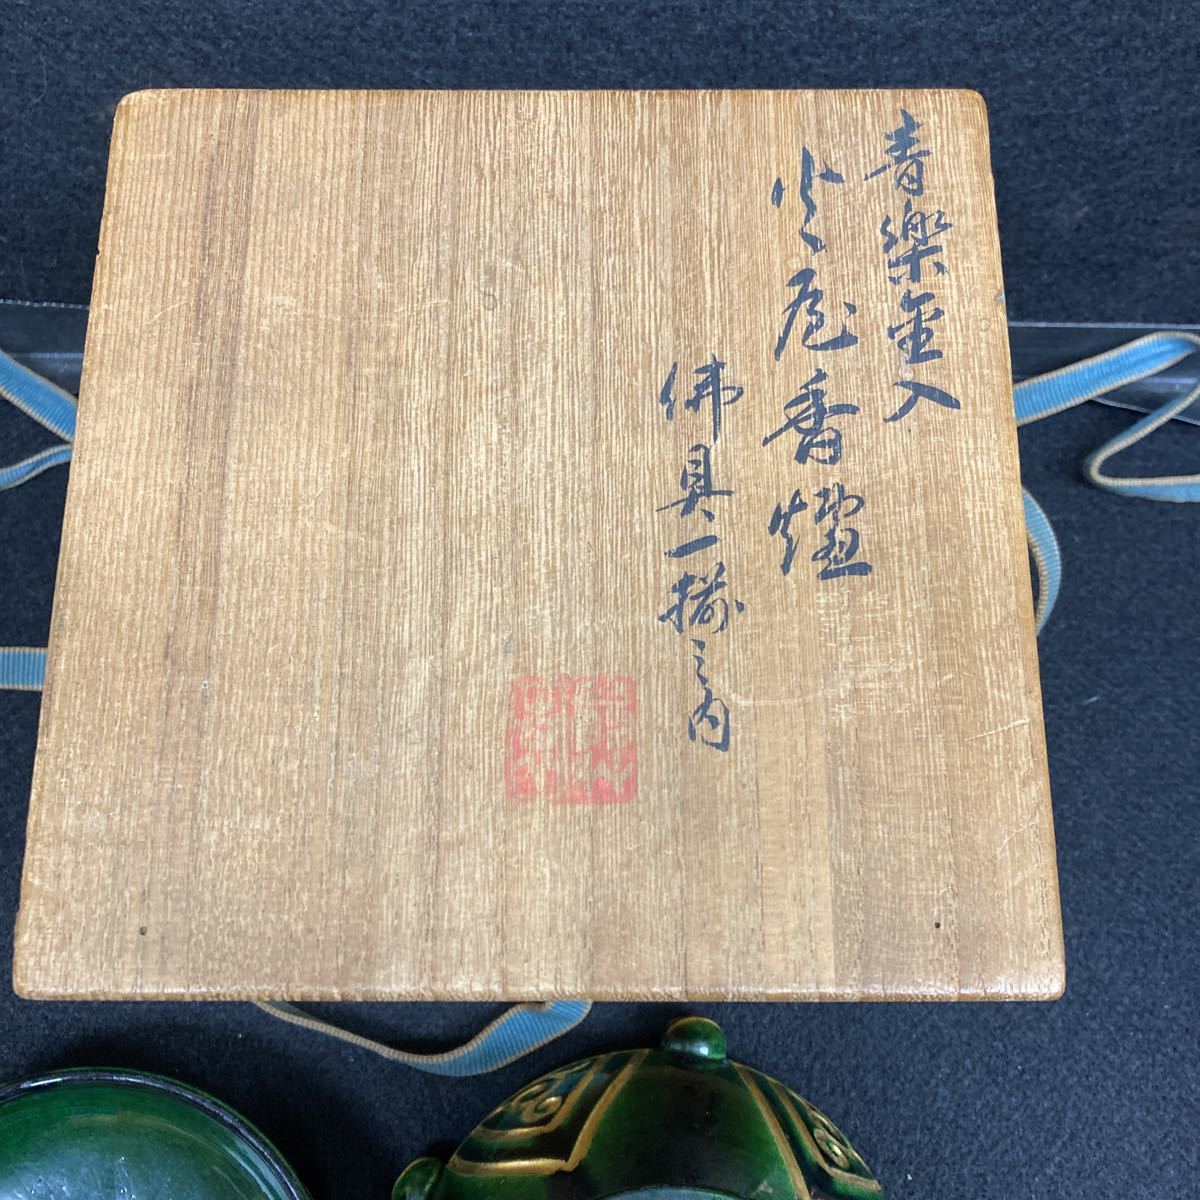 青樂金入
火屋香爐
佛具一揃之内